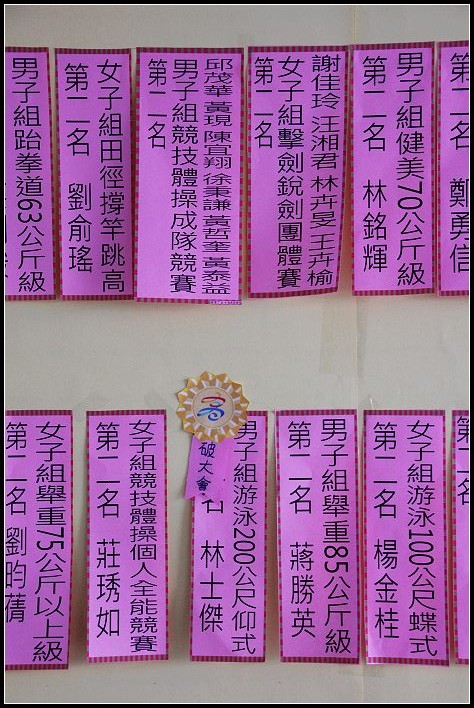 鄭勇信
男子組健美70公斤級
第二名 林銘輝
謝佳玲 汪湘君 林卉旻 王卉榆
女子組擊劍銳劍團體賽
第二名
邱茂華 黃現 陳宜翔 徐秉謙 黃哲奎 黃泰益
男子組競技體操成隊競賽
第二名
女子組田徑撐竿跳高
第二名 劉俞瑤
男子組跆拳道63公斤級
女子組游泳100公尺蝶式
第二名 楊金桂
男子組舉重85公斤級
第二名 蔣勝英
男子組游泳200公尺仰式
名 林士傑
破大會
女子組競技體操個人全能競賽
第二名 莊琇如
女子組舉重75公斤以上級
第二名 劉昀蒨